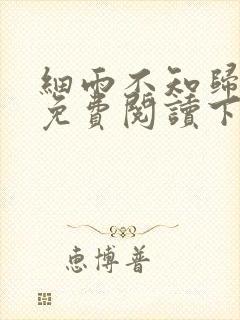 細雨不知歸
免費閱讀下
恵博普